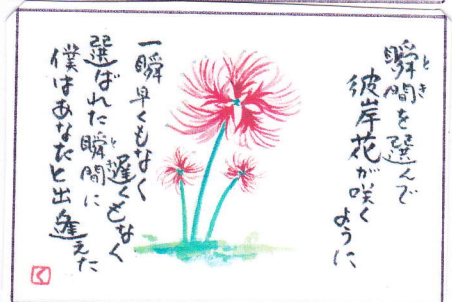 瞬間を選んで
とき
彼岸花が咲く
ように
一瞬早くもなく
遅くもなく
選ばれた瞬間に
とき
僕はあなたと出逢えた
く